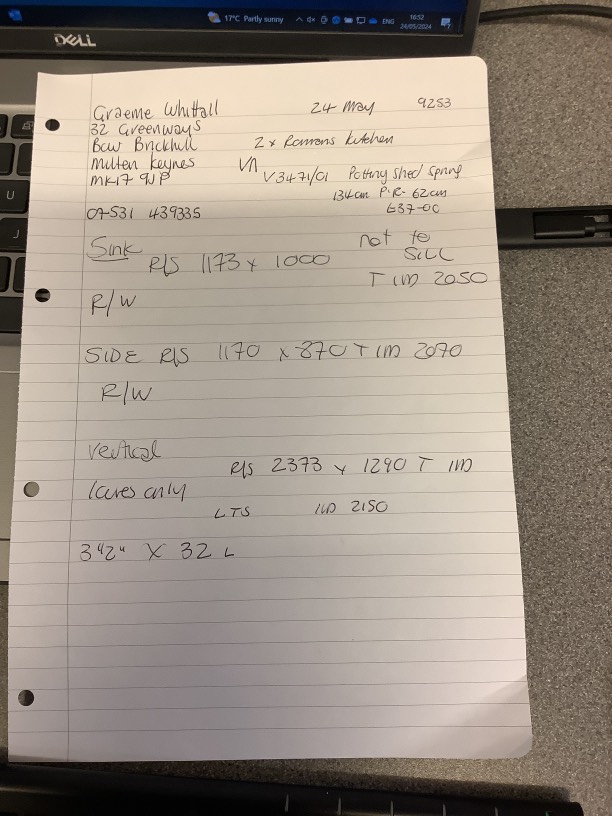 17°C Partly sunny ENG 16:52
24/05/2024
DELL
U
J
Graeme Whittall 24 May 9253
32 Greenways
Bow Brickhill 2 x Romans kitchen
Milten Keynes VN
MK17 9JP V3471/01 Pottery shed spring
134cm P.R. 62cm
£37-00
07531 439335
Sink not to
SILL
R/S 1173 x 1000
T IID 2050
R/W
SIDE R/S 1170 x 870 T IID 2070
R/W
Vertical
R/S 2373 x 1290 T IID
louvres only
LTS IID 2150
3 1/2" X 32 L